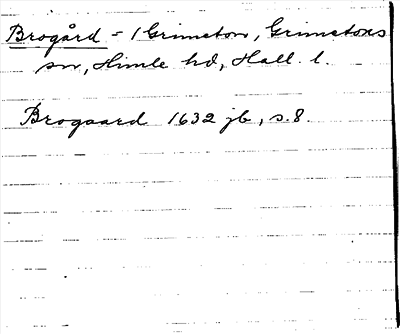 Brogård = 1 Grimeton, Grimetons
sn, Himle hd, Hall. l.
Brogaard 1632 jb, s. 8.